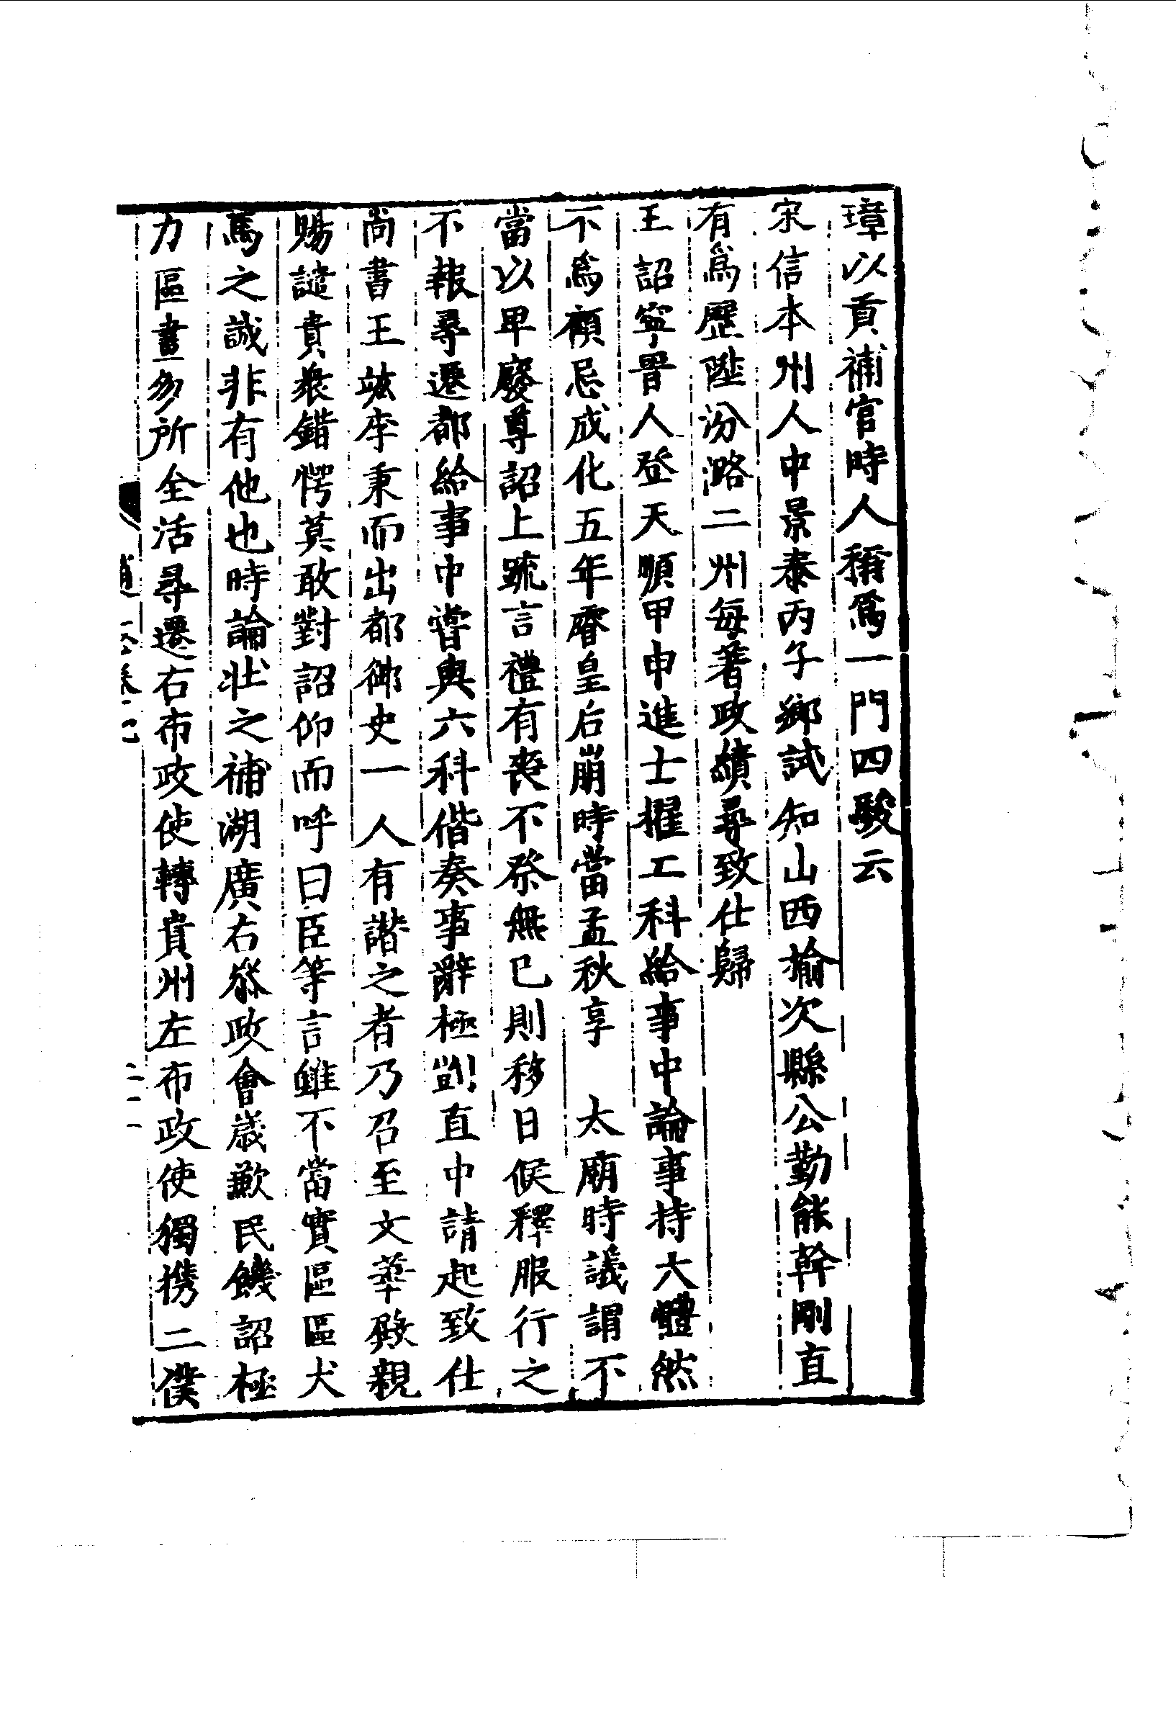 璋以貢補官時人稱爲一門四駿云
宋信本州人中景泰丙子鄉試知山西榆次縣公勤能幹剛直
有爲歷陞汾潞二州每著政績尋致仕歸
王詔寧晉人登天順甲申進士擢工科給事中論事持大體然
不爲顧忌成化五年睿皇后崩時當孟秋享　太廟時議謂不
當以卑廢尊詔上疏言禮有喪不祭無已則移日候釋服行之
不報尋遷都給事中嘗與六科偕奏事辭極剴直中請起致仕
尚書王竑李秉而出都御史一人有譖之者乃召至文華殿親
賜譴責衆錯愕莫敢對詔仰而呼曰臣等言雖不當實區區犬
馬之誠非有他也時論壯之補湖廣右叅政會歲歉民饑詔極
力區畫多所全活尋遷右布政使轉貴州左布政使獨携二僕